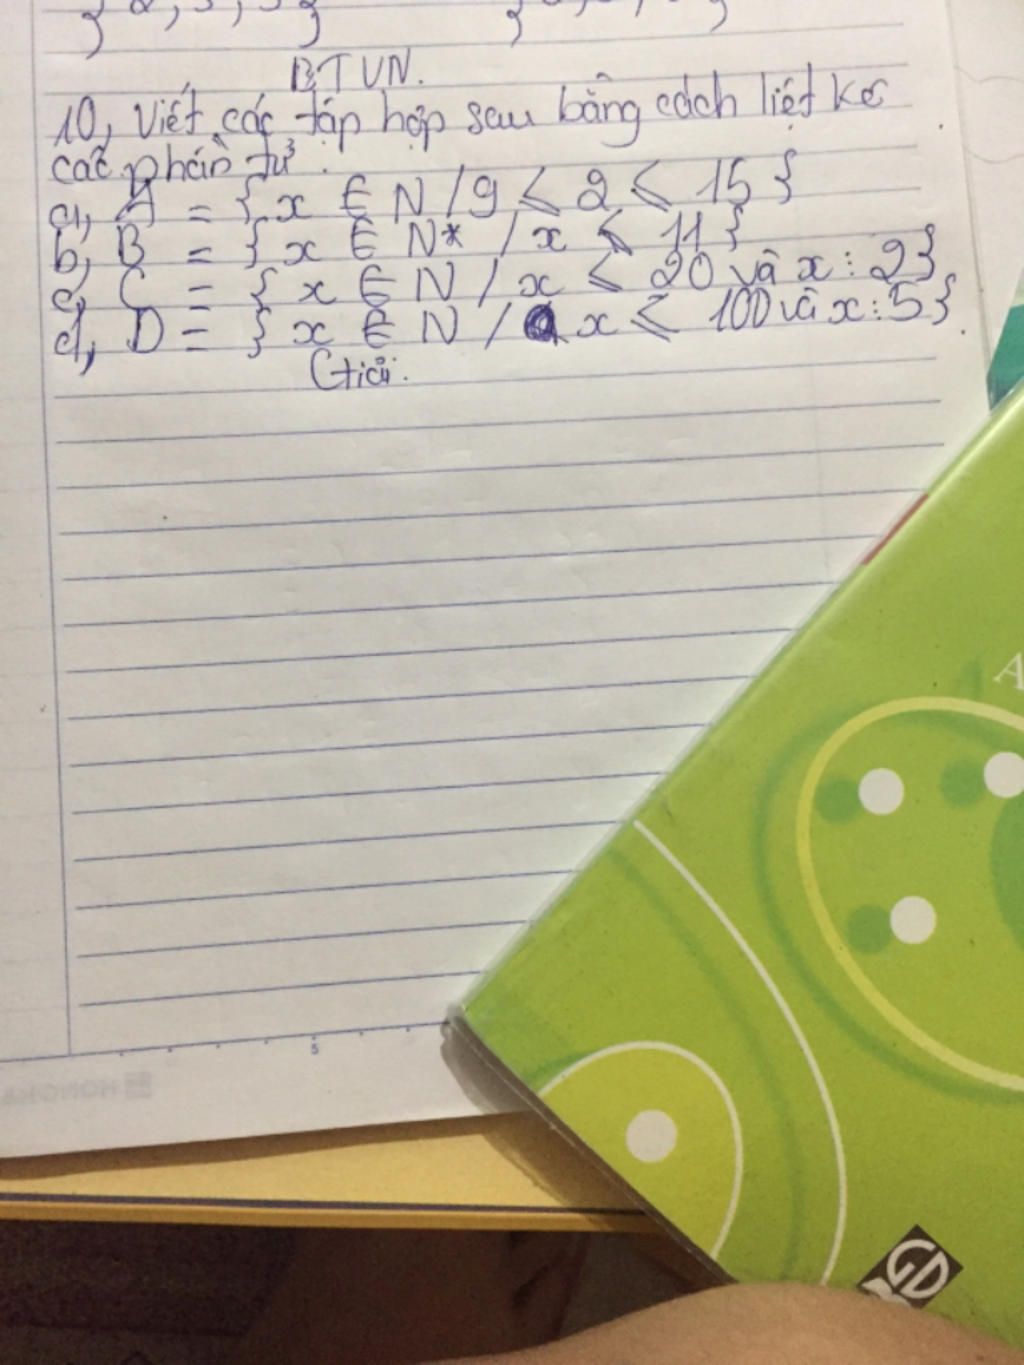 BTVN.
10, Viết các tập hợp sau bằng cách liệt kê
các phần tử.
a, A = { x ∈ N / 9 ≤ 2 ≤ 15 }
b, B = { x ∈ N* / x ≤ 11 }
c, C = { x ∈ N / x ≤ 20 và x ⋮ 2 }
d, D = } x ∈ N / x ≤ 100 và x ⋮ 5 }.
Giải:
5
A
GD